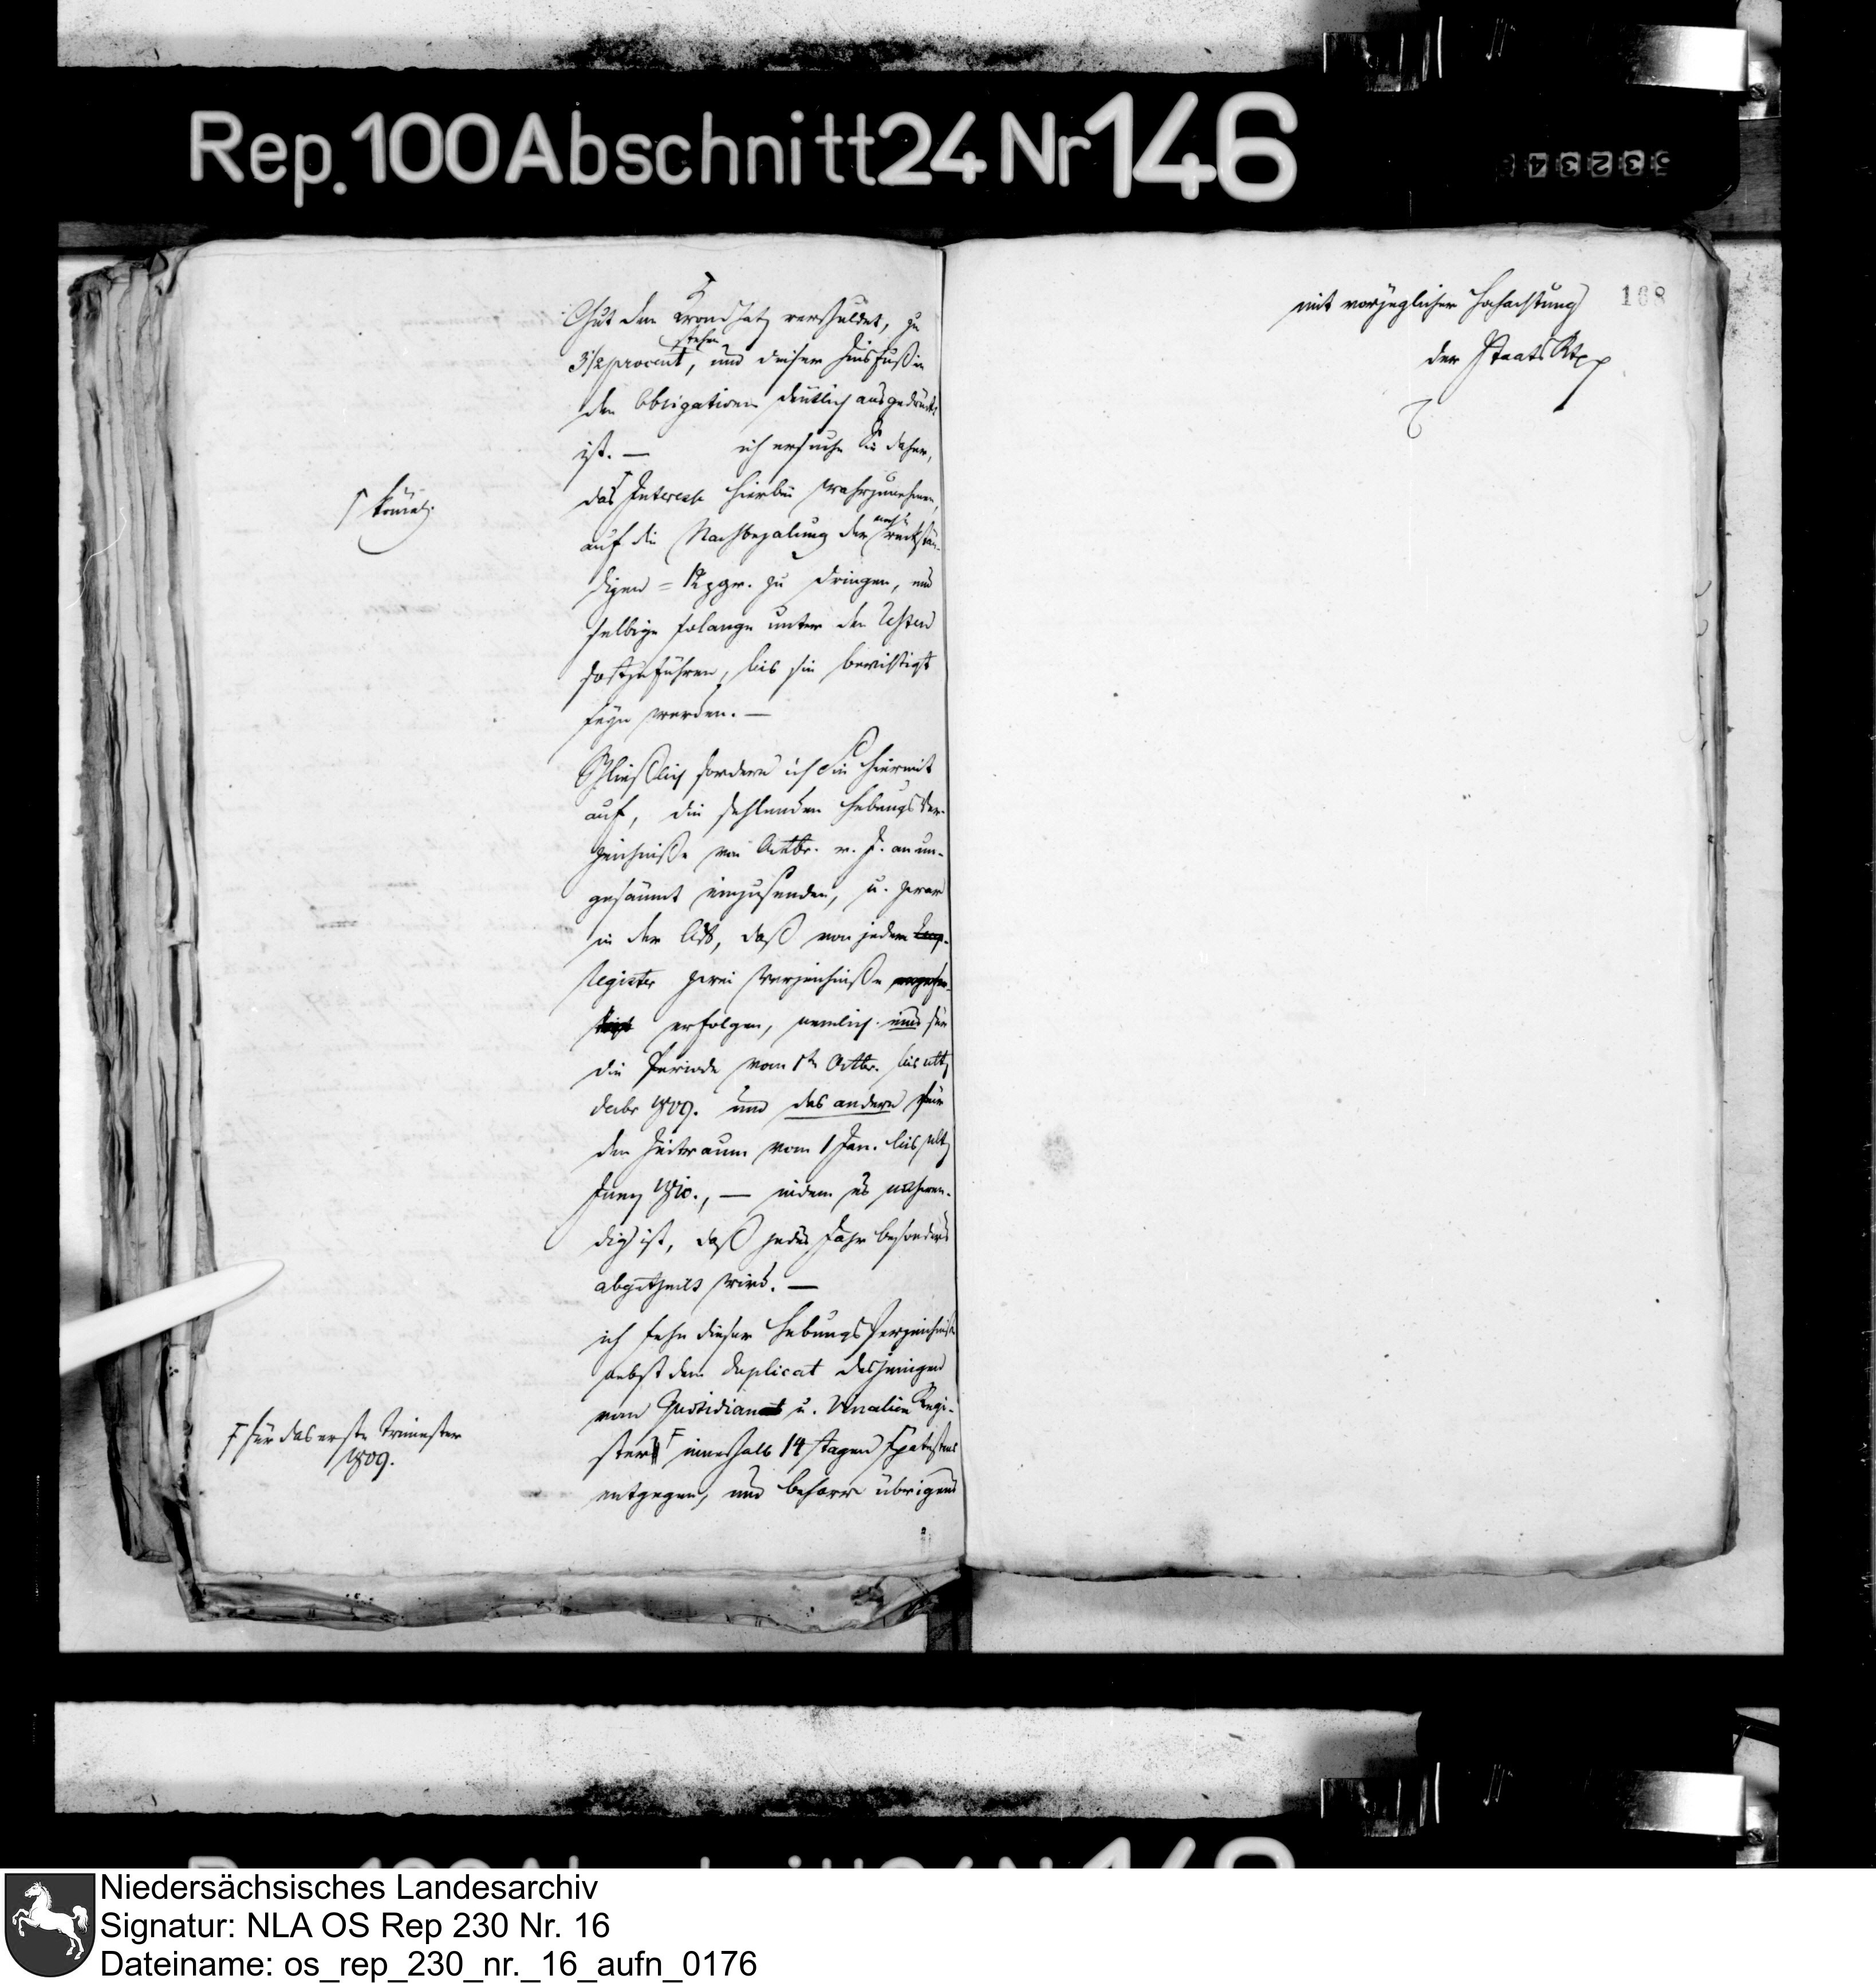 Rep. 100 Abschnitt 24 Nr 146
53234
Gut dem Kronschatz verschuldet, zu
stehen
3 1/2 procent, und dieser Zinsfuß in
den Obligationen deutlich ausgedrückt
ist. — ich ersuche Sie daher,
das Interesse hierbei wahrzunehmen,
Γ königl.
auf die Nachbezalung der noch rückstän-
digen = zu dringen, und
selbige solange unter den Resten
fortzuführen, bis sie berichtigt
seyn werden. —
Schließlich fordere ich Sie hiermit
auf, die fehlenden Hebungs Ver-
zeichniße von Octbr. v. J. an un-
gesäumt einzusenden, u. zwar
in der Art, daß von jedem
Register zwei Verzeichniße
erfolgen, nemlich eins für
die Periode vom 1ten Octbr. bis ult.
decbr 1809. und das andere für
den Zeitraum vom 1 Jan. bis ult.
Juny 1810., — indem es nothwen-
dig ist, daß jedes Jahr besonders
abgetheilt wird. —
ich sehe dieser Hebungs Verzeichniße
nebst dem Duplicat desjenigen
vom Quotidian u. Venalien Regi-
ster F innerhalb 14 Tagen spätestens
F für das erste Trimester
1809.
entgegen, und beharre übrigens
168
mit vorzüglicher Hochachtung
der Staats Rt pp
Niedersächsisches Landesarchiv
Signatur: NLA OS Rep 230 Nr. 16
Dateiname: os_rep_230_nr._16_aufn_0176